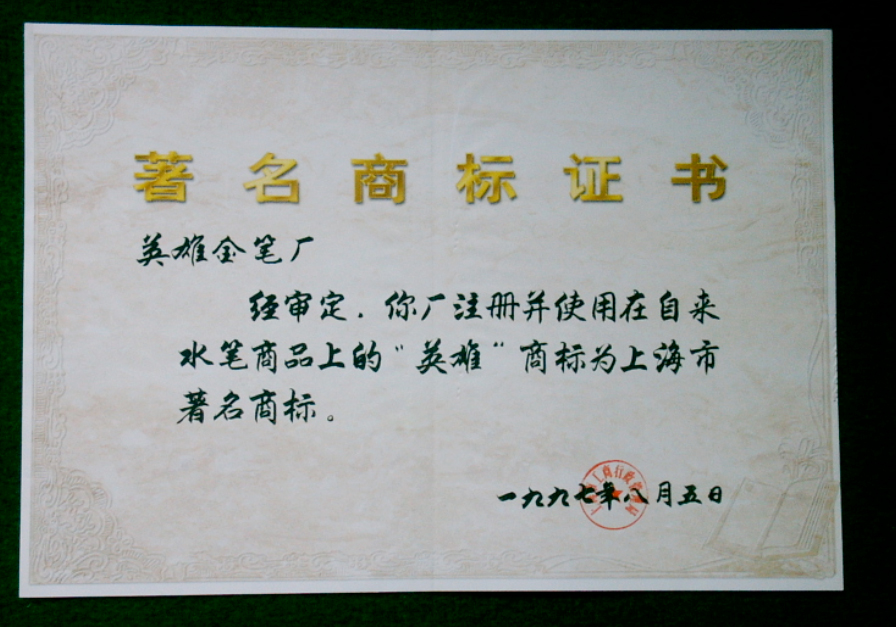 著名商标证书
英雄金笔厂
经审定，你厂注册并使用在自来
水笔商品上的“英雄”商标为上海市
著名商标。
一九九七年八月五日
上海市工商行政管理局